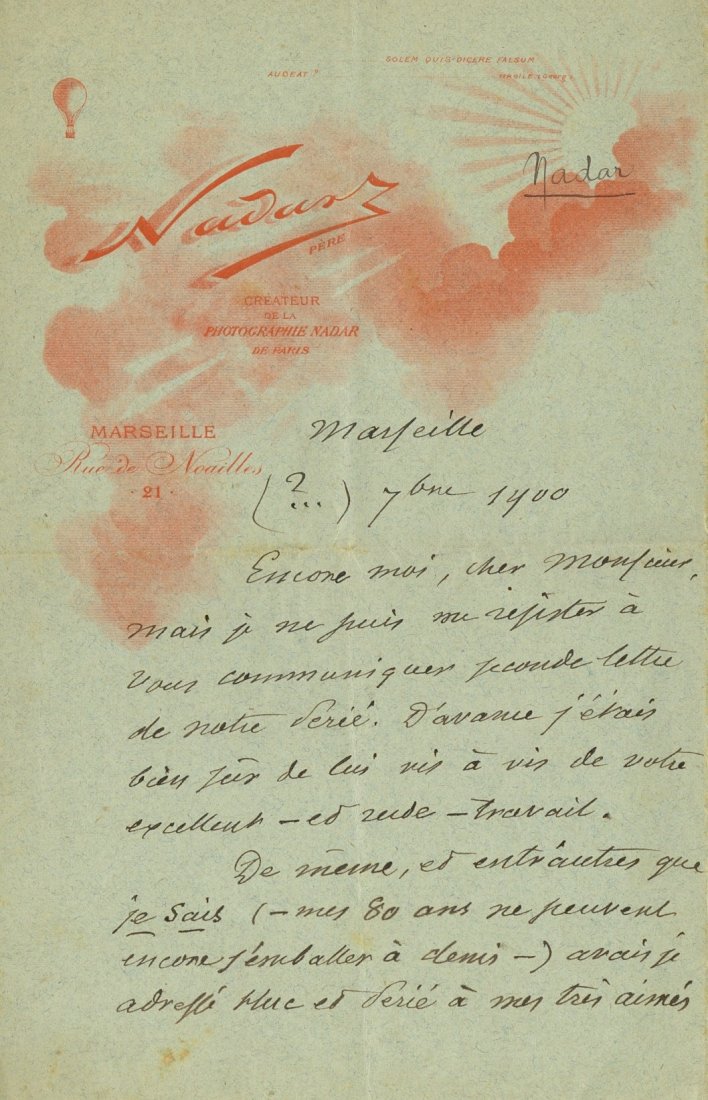 SOLEM QUIS DICERE FALSUM
AUDEAT ?
Nadar
Nadar
PÈRE
CRÉATEUR
DE LA
PHOTOGRAPHIE NADAR
DE PARIS
MARSEILLE
Rue de Noailles
· 21 ·
Marseille
(?...) 7bre 1900
Encore moi, cher Monsieur,
mais je ne puis me résister à
vous communiquer seconde lettre
de notre Sérié. D'avance j'étais
bien sûr de lui vis à vis de votre
excellent – et rude – travail.
De même, et entr'autres que
je sais (– mes 80 ans ne peuvent
encore s'emballer à demis –) avais je
adressé Huc et Sérié à mes très aimés